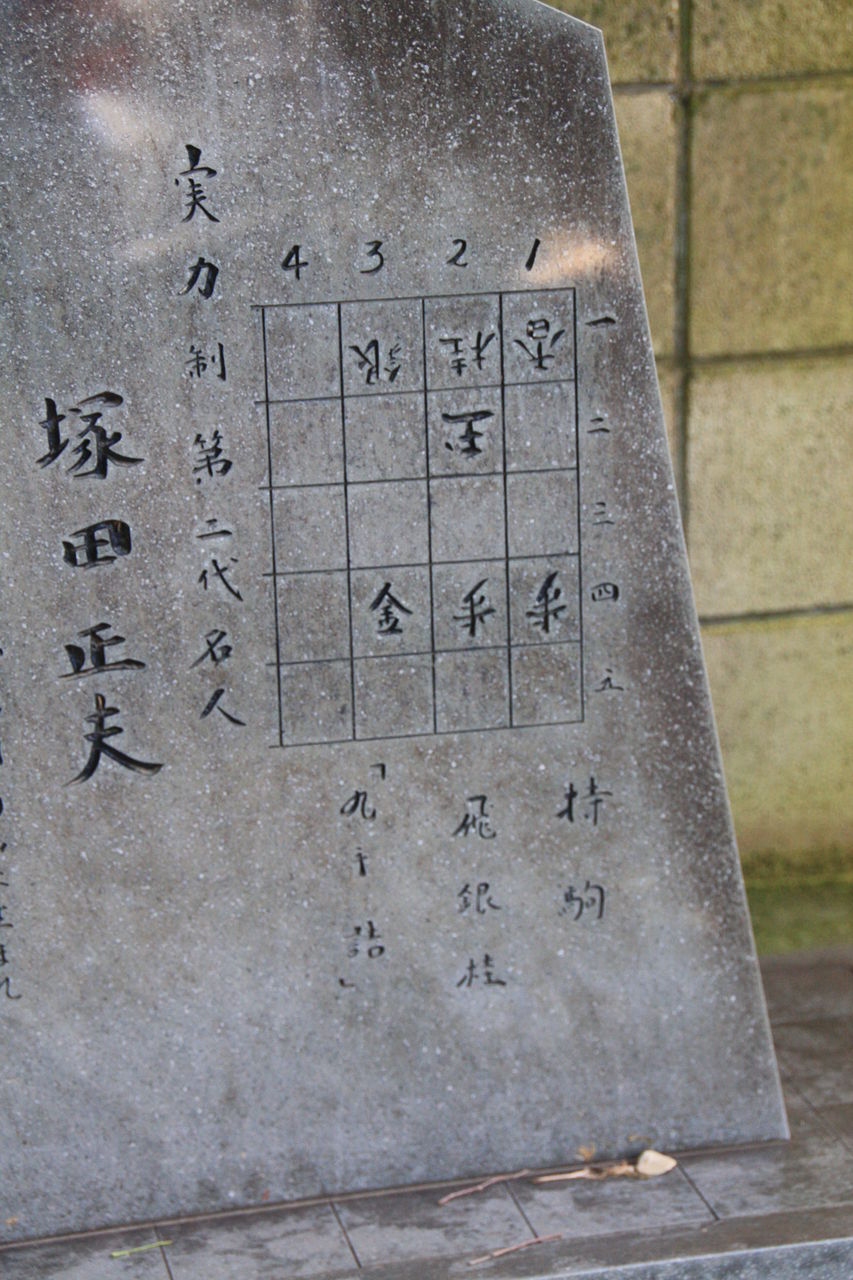 4 3 2 1
銀 桂 香 一
玉 二
三
金 歩 歩 四
五
持駒
飛銀桂
「九手詰」
実力制第二代名人
塚田正夫